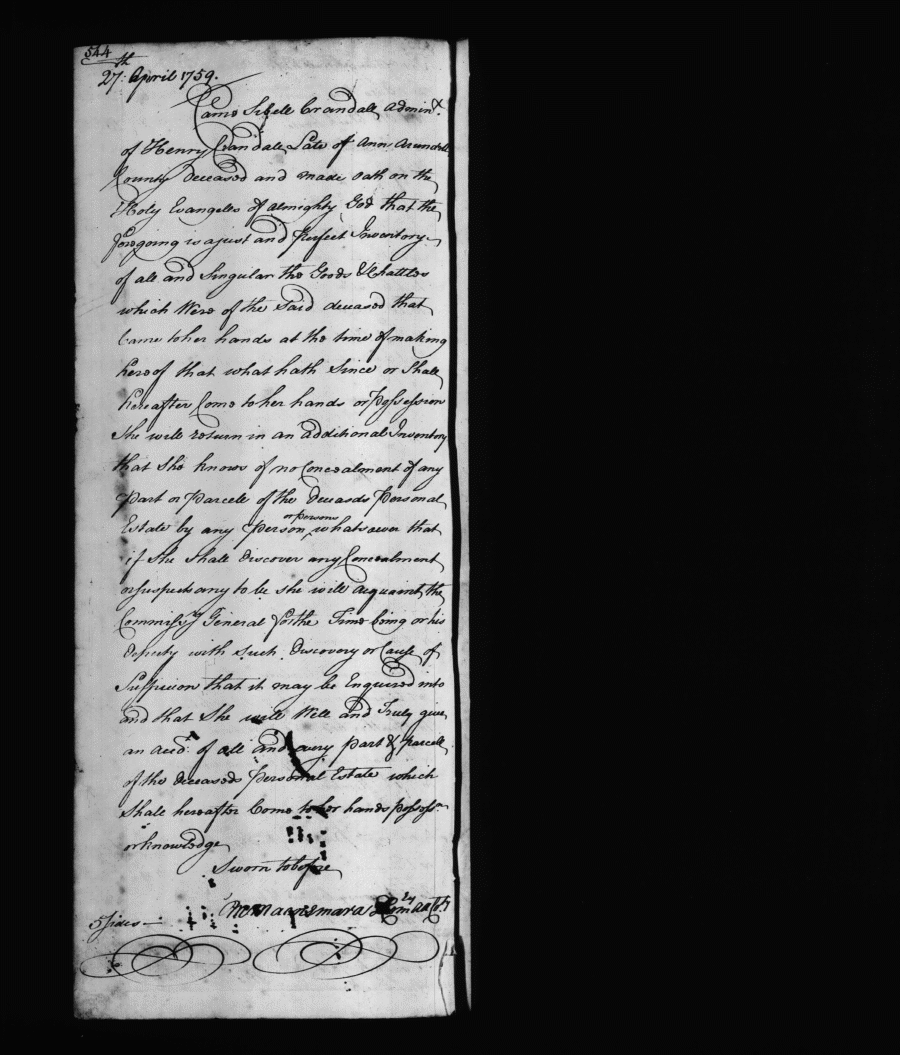 544
27th April 1759.
Came Sibell Crandall Adminx.
of Henry Crandall Late of Ann Arundell
County Deceased and made Oath on the
Holy Evangeles of Almighty God that the
foregoing is a just and Perfect Inventory
of all and Singular the Goods & Chattles
which Were of the Said deceased that
Came to her hands at the time of making
hereof that what hath Since or Shall
hereafter Come to her hands or Possession
She will return in an Additional Inventory
that She knows of no Concealment of any
Part or Parcell of the Deceaseds Personal
Estate by any Person or persons whatsoever that
if She Shall discover any Concealment
or suspects any to be she will acquaint the
Commissy General for the Time being or his
Deputy with such Discovery or Cause of
Suspicion that it may be Enquired into
and that She will Well and Truly give
an acct. of all and every part & parcell
of the deceaseds personal Estate which
Shall hereafter Come to her hands possesson
or knowledge
Sworn to before
Macnemara AA Cty
5 Sides